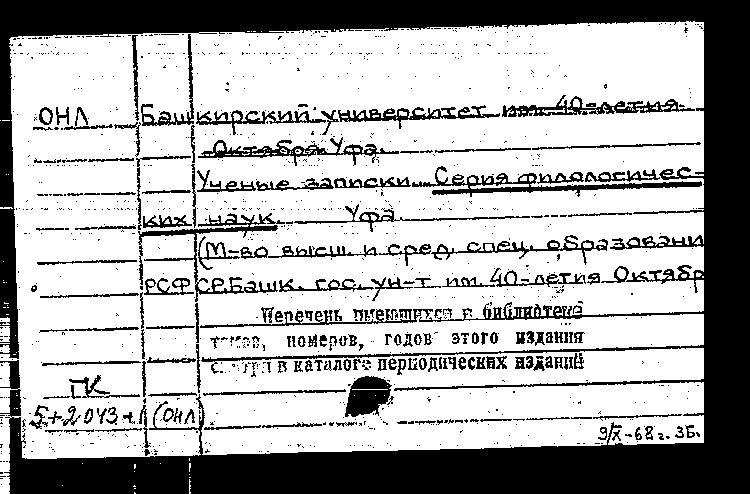 ОНЛ Башкирский университет им. 40-летия
Октября. Уфа.
Ученые записки... Серия филологичес-
ких наук. Уфа.
(М-во высш. и сред. спец. образовани
РСФСР. Башк. гос. ун-т им. 40-летия Октябр
Перечень имеющихся в библиотеке
томов, номеров, годов этого издания
смотри в каталоге периодических изданий
ГК
5+2043+1 (ОНЛ)
9/X-68 г. ЗБ.